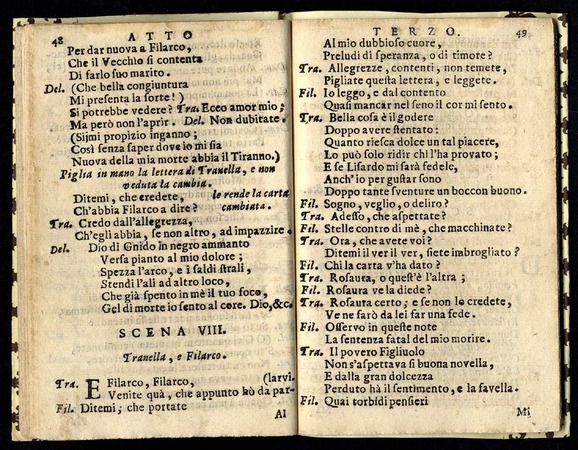 48 ATTO
Per dar nuova a Filarco,
Che il Vecchio si contenta
Di farlo suo marito.
Del. (Che bella congiuntura
Mi presenta la sorte!)
Si potrebbe vedere? Tra. Ecco amor mio;
Ma però non l'aprir. Del. Non dubitate.
(Sijmi propizio inganno;
Così senza saper dove io mi sia
Nuova della mia morte abbia il Tiranno.)
Piglia in mano la lettera di Tranella, e non
veduta la cambia.
Ditemi, che credete, le rende la carta
Ch'abbia Filarco a dire? cambiata.
Tra. Credo dall'allegrezza,
Ch'egli abbia, se non altro, ad impazzire.
Del. Dio di Gnido in negro ammanto
Versa pianto al mio dolore;
Spezza l'arco, e i saldi strali,
Stendi l'ali ad altro loco,
Che già spento in mè il tuo foco,
Gel di morte io sento al core. Dio,&c.
SCENA VIII.
Tranella, e Filarco.
Tra. E Filarco, Filarco, (larvi.
Venite quà, che appunto hò da par-
Fil. Ditemi; che portate
Al
TERZO. 49
Al mio dubbioso cuore,
Preludi di speranza, o di timore?
Tra. Allegrezze, contenti, non temete,
Pigliate questa lettera, e leggete.
Fil. Io leggo, e dal contento
Quasi mancar nel seno il cor mi sento.
Tra. Bella cosa è il godere
Doppo avere stentato:
Quanto riesca dolce un tal piacere,
Lo può solo ridir chi l'ha provato;
E se Lisardo mi sarà fedele,
Anch'io per gustar sono
Doppo tante sventure un boccon buono.
Fil. Sogno, veglio, o deliro?
Tra. Adesso, che aspettate?
Fil. Stelle contro di mè, che macchinate?
Tra. Ora, che avete voi?
Ditemi il ver il ver, siete imbrogliato?
Fil. Chi la carta v'ha dato?
Tra. Rosaura, o quest'è l'altra;
Fil. Rosaura ve la diede?
Tra. Rosaura certo; e se non lo credete,
Ve ne farò da lei far una fede.
Fil. Osservo in queste note
La sentenza fatal del mio morire.
Tra. Il povero Figliuolo
Non s'aspettava sì buona novella,
E dalla gran dolcezza
Perduto hà il sentimento, e la favella.
Fil. Quai torbidi pensieri
Mi